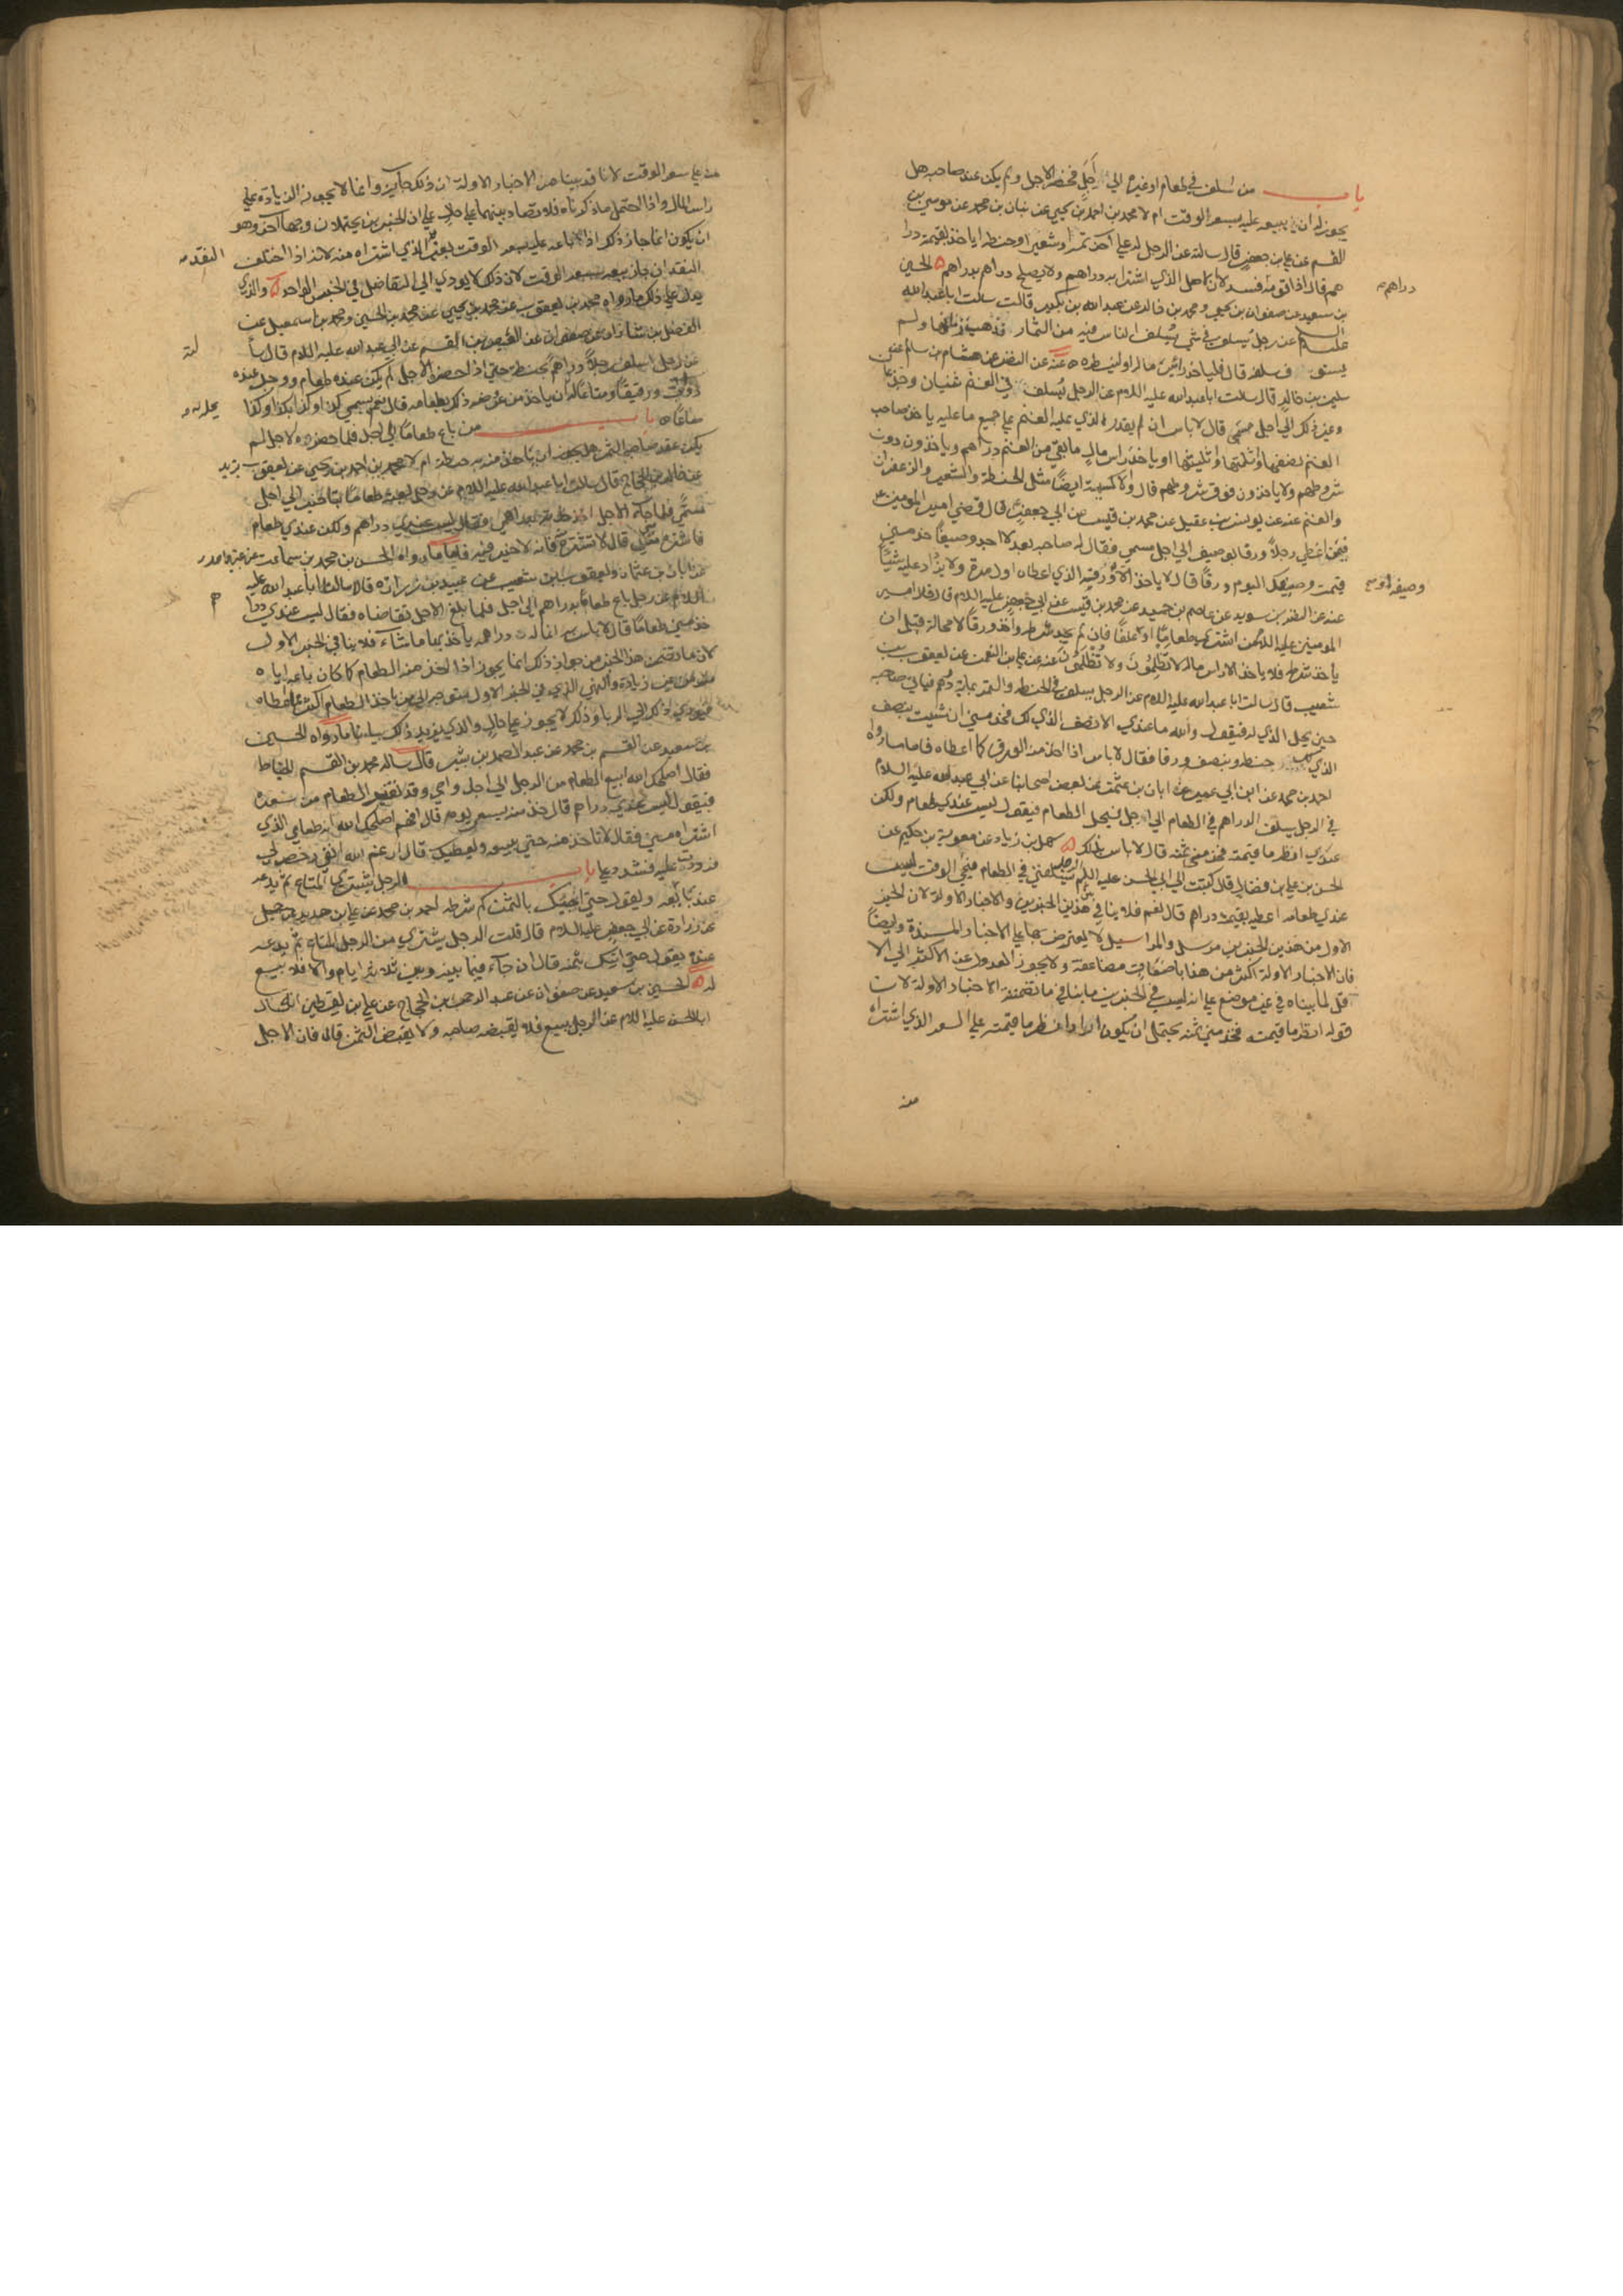 باب من اسلف في طعام او غيره الي اجل فحضر الاجل ولم يكن عند صاحبه هل
يجوز له ان يبيعه عليه بسعر الوقت ام لا محمد بن احمد بن يحيي عن بنان بن محمد عن موسي بن
القسم عن علي بن جعفر قال سالته عن الرجل له علي آخر تمر او شعير او حنطة اياخذ بقيمته درا
هم قال اذا قومه فسد لان الاصل الذي اشترا به دراهم ولا يصلح دراهم بدراهم الحسين
دراهم
بن سعيد عن صفوان بن يحيي ومحمد بن خالد عن عبد الله بن بكير قالت سالت ابا عبد الله
عليه السلام عن رجل يسلف في شي يسلف الناس فيه من الثمار فذهب زمانها ولم
يستوف سلفه قال فلياخذ راس ماله او لينظره عنه عن النضر عن هشام بن سالم عن
سليمن بن خالد قال سالت ابا عبد الله عليه السلام عن الرجل يسلف في الغنم ثنيان وجذعان
وغير ذلك الي اجل مسمي قال لا باس ان لم يقدر الذي عليه الغنم علي جميع ما عليه ياخذ صاحب
الغنم نصفها او ثلثها او ثلثيها او ياخذ راس مال ما بقي من الغنم دراهم وياخذون دون
شروطهم ولا ياخذون فوق شروطهم قال والاكسية ايضا مثل الحنطة والشعير والزعفران
والغنم عنه عن يوسف بن عقيل عن محمد بن قيس عن ابي جعفر قال قضي امير المومنين ع
فيمن اعطي رجلا ورقا بوصيف الي اجل مسمي فقال له صاحبه بعد لا اجد وصيفا خذ مني
قيمت وصيفك اليوم ورقا قال لا ياخذ الا وصيفه او ورقه الذي اعطاه اول مرة ولا يزداد عليه شيئا
عنه عن النضر بن سويد عن عاصم بن حميد عن محمد بن قيس عن ابي جعفر عليه السلام قال قال امير
المومنين عليه السلام من اشتري طعاما او علفا فان لم يجد شرطه واخذ ورقا لا محالة قبل ان
ياخذ شرطه فلا ياخذ الا راس ماله لا تظلمون ولا تظلمون عنه عن علي بن النعمن عن يعقوب بن
شعيب قال سالت ابا عبد الله عليه السلام عن الرجل يسلف في الحنطة والتمر بماية درهم فياتي صاحبه
حين يحل الذي له فيقول والله ما عندي الا نصف الذي لك فخذ مني ان شئت بنصف
الذي لك حنطة وبنصف ورقا فقال لا باس اذا اخذ منه الورق كما اعطاه فاما ما رواه
احمد بن محمد عن ابن ابي عمير عن ابان بن عثمن عن بعض اصحابنا عن ابي عبد الله عليه السلام
في الرجل يسلف الدراهم في الطعام الي اجل فيحل الطعام فيقول ليس عندي طعام ولكن
انظر ما قيمته فخذ مني ثمنه قال لا باس بذلك سهل بن زياد عن معوية بن حكيم عن
الحسن بن علي بن فضال قال كتبت الي ابي الحسن عليه السلام الرجل يسلفني في الطعام فيجي الوقت وليس
عندي طعامه اعطيه بقيمته دراهم قال نعم فلا ينافي هذين الخبرين والاخبار الاولة لان الخبر
الاول من هذين الخبرين مرسل والمراسيل لا يعترض بها علي الاخبار المسندة وايضا
فان الاخبار الاولة اكثر من هذا باضعاف مضاعفة ولا يجوز العدول عن الاكثر الي الا
قل لما بيناه في غير موضع علي انه ليس في الخبرين ما ينافي ما تضمنته الاخبار الاولة لان
قوله انظر ما قيمته فخذ مني ثمنه يحتمل ان يكون اراد انظر ما قيمته علي السعر الذي اشتراه
منه
منه علي سعر الوقت لانا قد بينا من الاخبار الاولة ان ذلك جايز وانما لا يجوز الزيادة علي
راس المال واذا احتمل ما ذكرناه فلا تضاد بينهما علي حال علي ان الخبرين يحتملان وجها آخر وهو
ان يكون انما جاز ذلك اذا باعه عليه بسعر الوقت بغير النقد الذي اشتراه منه لانه اذا اختلف
النقدان جاز بيعه بسعر الوقت لان ذلك لا يودي الي التفاضل في الجنس الواحد والذي
يدل علي ذلك ما رواه محمد بن يعقوب عن محمد بن يحيي عن محمد بن الحسين ومحمد بن اسمعيل عن
الفضل بن شاذان عن صفوان عن العيص بن القسم عن ابي عبد الله عليه السلام قال سالته
عن رجل اسلف رجلا دراهم بحنطة حتي اذا حضر الاجل لم يكن عنده طعام ووجد عنده
دواب ورقيقا ومتاعا يحل له ان ياخذ من عروضه ذلك بطعامه قال نعم يسمي كذا وكذا بكذا وكذا
صاعا باب من باع طعاما الي اجل فلما حضره الاجل لم
يكن عند صاحبه الثمن هل يجوز ان ياخذ منه حنطة ام لا محمد بن احمد بن يحيي عن يعقوب بن يزيد
عن خالد بن الحجاج قال سالت ابا عبد الله عليه السلام عن رجل بعته طعاما بتاخير الي اجل
مسمي فلما جاء الاجل اخذته بدراهمي فقال ليس عندي دراهم ولكن عندي طعام
فاشتره مني قال لا تشتره فانه لا خير فيه فاما ما رواه الحسن بن محمد بن سماعة عن غير واحد
عن ابان بن عثمان عن يعقوب بن شعيب عن عبيد بن زرارة قالا سالنا ابا عبد الله عليه
السلام عن رجل باع طعاما بدراهم الي اجل فلما بلغ الاجل تقاضاه فقال ليس عندي درا
خذ مني طعاما قال لا باس به انما له دراهمه ياخذ بها ما شاء فلا ينافي الخبر الاول
لان ما تضمن هذا الخبر من جواز ذلك انما يجوز اذا اخذ منه الطعام كما كان باعه اياه
من غير زيادة والنهي الذي في الخبر الاول متوجه الي من ياخذ الطعام اكثر مما اعطاه
فيودي ذلك الي الربا وذلك لا يجوز علي حال والذي يزيد ذلك بيانا ما رواه الحسين
بن سعيد عن القسم بن محمد عن عبد الصمد بن بشير قال ساله محمد بن القسم الحناط
فقال اصلحك الله ابيع الطعام من الرجل الي اجل فاجي وقد تغير الطعام من سعره
فيقول ليس عندي دراهم قال خذ منه بسعر يومه قال افهم اصلحك الله انه طعامي الذي
اشتراه مني فقال لا تاخذ منه حتي يبيعه ويعطيك قال ارغم الله انفي رخص لي
فرددت عليه فشدد علي باب الرجل يشتري المتاع ثم يدعه
عند بايعه ويقول حتي اجيئك بالثمن كم شرطه احمد بن محمد عن علي بن حديد عن جميل
عن زرارة عن ابي جعفر عليه السلام قال قلت الرجل يشتري من الرجل المتاع ثم يدعه
عنده يقول حتي اتيك بثمنه قال ان جاء فيما بينه وبين ثلاثة ايام والا فلا بيع
له الحسين بن سعيد عن صفوان عن عبد الرحمن بن الحجاج عن علي بن يقطين انه سال
ابا الحسن عليه السلام عن الرجل يبيع فلا يقبضه صاحبه ولا يقبض الثمن قال فان الاجل